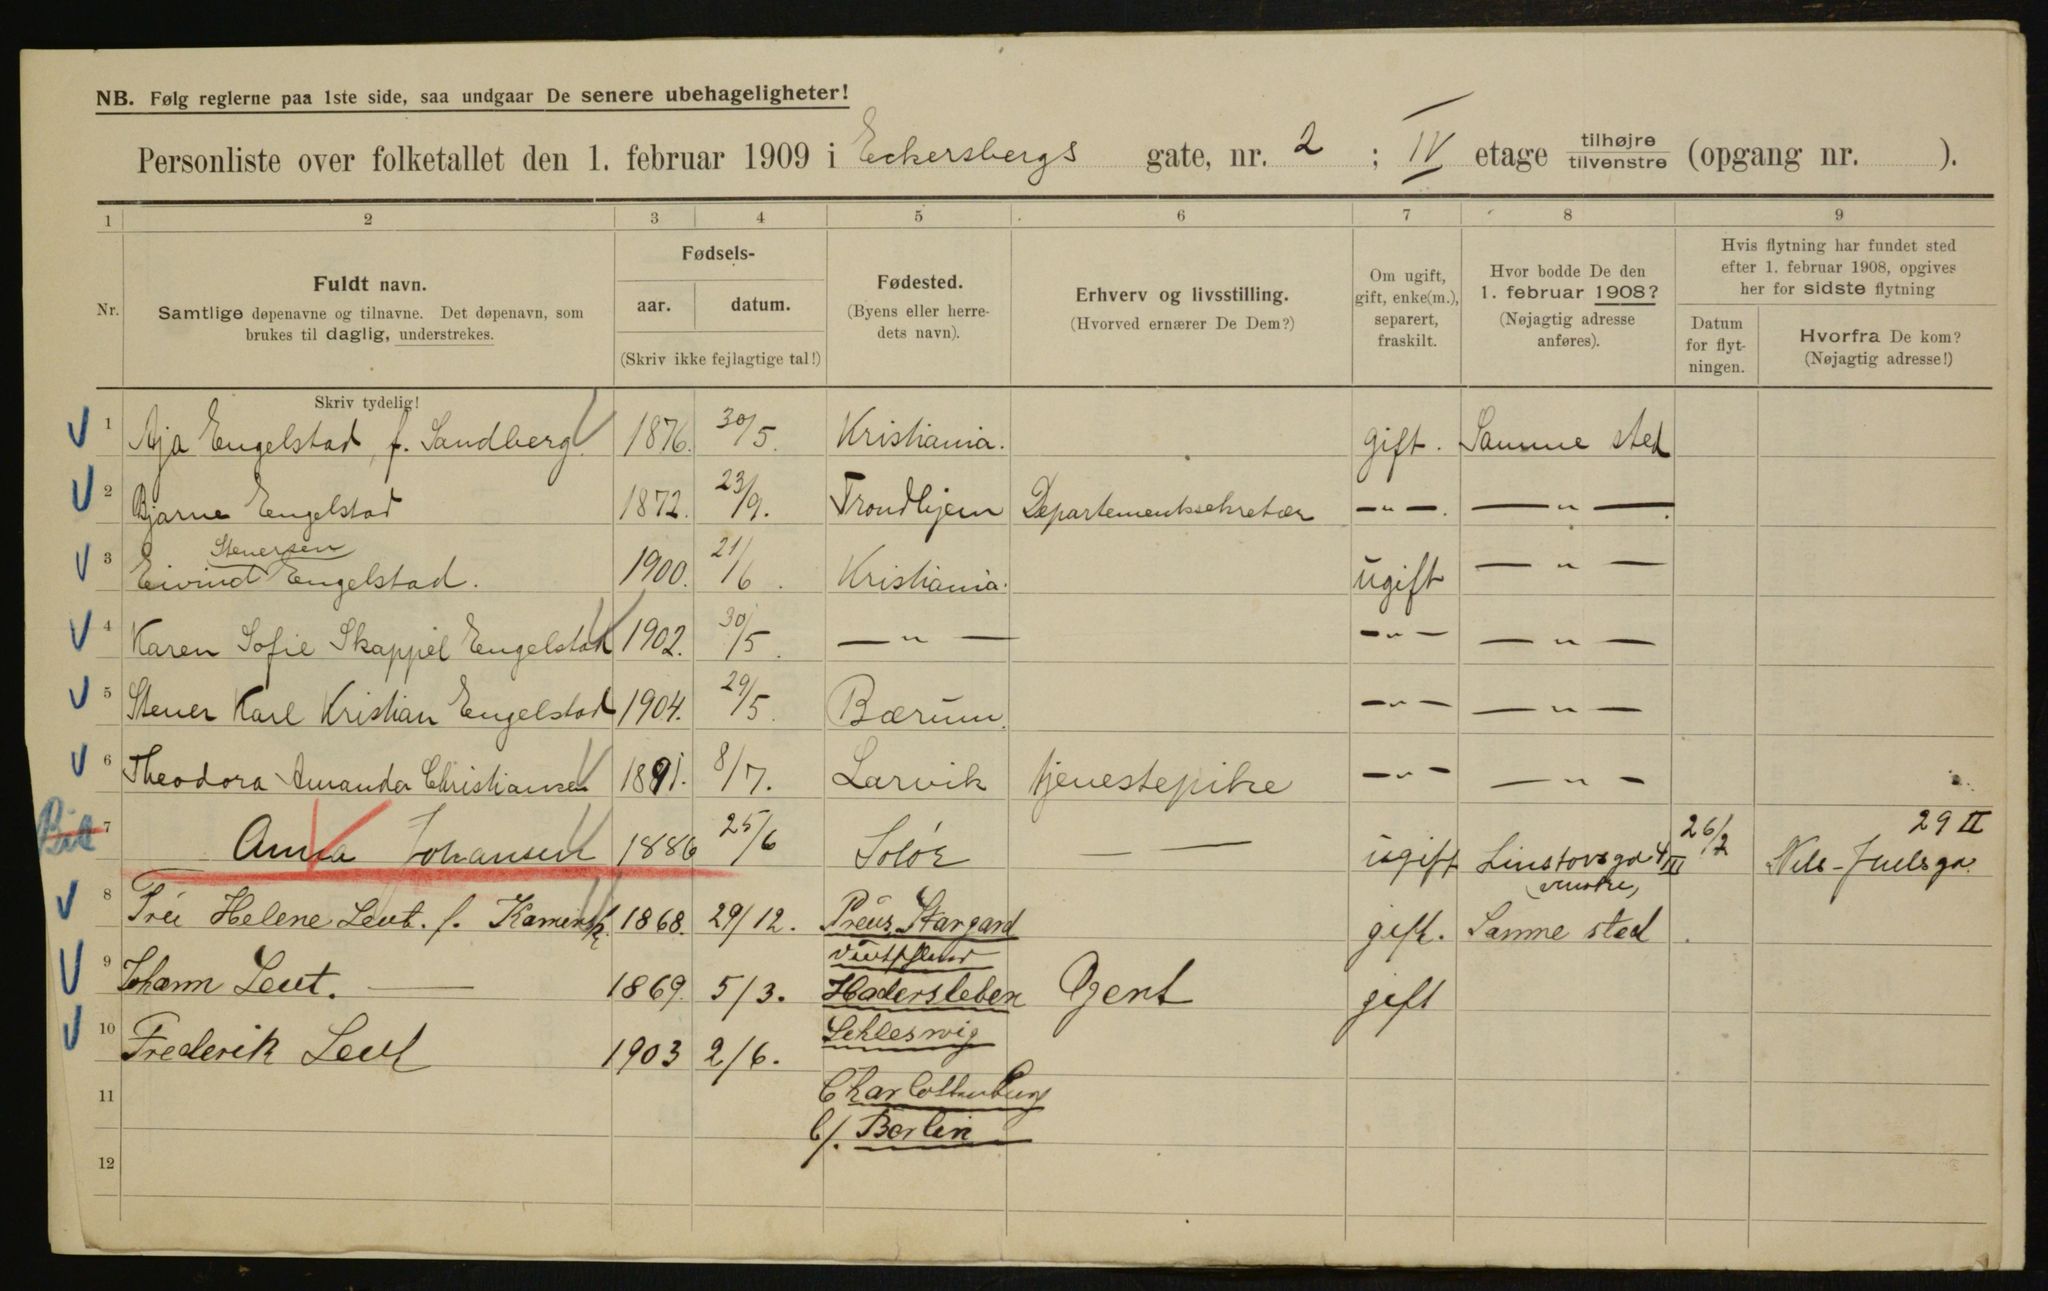 NB. Følg reglerne paa 1ste side, saa undgaar De senere ubehageligheter!
Personliste over folketallet den 1. februar 1909 i Eckersbergs gate, nr. 2 ; IV etage tilhøjre tilvenstre (opgang nr. ).
1 2 3 4 5 6 7 8 9
Nr.
Fuldt navn.
Samtlige døpenavne og tilnavne. Det døpenavn, som
brukes til daglig, understrekes.
Skriv tydelig!
Fødsels-
aar. datum.
(Skriv ikke fejlagtige tal!)
Fødested.
(Byens eller herre-
dets navn).
Erhverv og livsstilling.
(Hvorved ernærer De Dem?)
Om ugift,
gift, enke(m.),
separert,
fraskilt.
Hvor bodde De den
1. februar 1908?
(Nøjagtig adresse
anføres).
Hvis flytning har fundet sted
efter 1. februar 1908, opgives
her for sidste flytning
Datum
for flyt-
ningen.
Hvorfra De kom?
(Nøjagtig adresse!)
1 Aja Engelstad, f. Sandberg. 1876. 30/5. Kristiania. gift. Samme sted
2 Bjarne Engelstad 1872. 23/9. Trondhjem Departementssekretær — " — . — " — .
3 Eivind Stenersen Engelstad. 1900. 21/6. Kristiania. ugift — " —
4 Karen Sofie Skappel Engelstad 1902. 30/5. — " — — " — — " —
5 Stener Karl Kristian Engelstad 1904. 29/5. Bærum. — " — — " —
6 Theodora Amanda Christiansen 1891. 8/7. Larvik tjenestepike — " — — " —
7 Anna Johansen 1886 25/6 Solør — — ugift Linstovsga 4 III venstre, 26/2 Nils-Juelsga. 29 II
8 Helene Leut. f. Kaminsk. 1868. 29/12. Preus. Stargard gift. Samme sted
9 Johann Leut. — 1869. 5/3. Hadersleben Agent gift
Schleswig
10 Frederik Leut 1903 2/6.
11 Charlottenburg
b/. Berlin
12